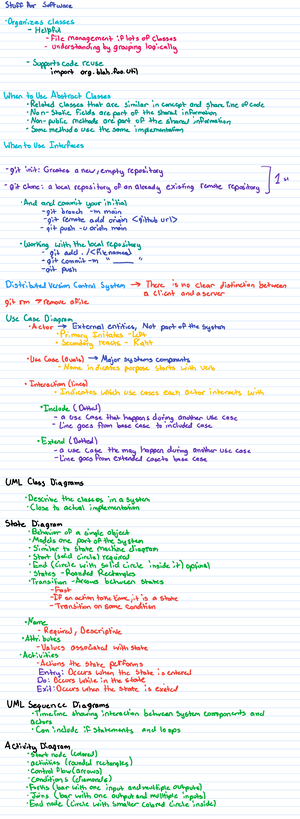 Stuff for Software
· Organizes classes
- Helpful
- File management if lots of classes
- understanding by grouping logically
- Supports code reuse
import org.blah.foo.util
When to Use Abstract Classes
· Related classes that are similar in concept and share line of code
· Non-State fields are part of the shared information
· Non-public methods are part of the shared information
· Some methods use the same implementation
When to Use Interfaces
- git init: Creates a new, empty repository
- git clone: a local repository of an already existing remote repository
1st
· And and commit your initial
- git branch -m main
- git remote add origin <github url>
- git push -u origin main
· Working with the local repository
- git add ./<filenames>
- git commit -m "______"
- git push
Distributed Version Control System → There is no clear distinction between
a client and a server
git rm → remove a file
Use Case Diagram
· Actor → External entities, Not part of the System
· Primary Initiates - Left
· Secondary reacts - Right
· Use Case (ovals) → Major systems components
- Name indicates purpose starts with verb
· Interaction (lines)
· Indicates which use cases each actor interacts with
· Include (Dotted)
- a use case that happens during another use case
- Line goes from base case to included case
· Extend (Dotted)
- a use case the may happen during another use case
- Line goes from extended case to base case
UML Class Diagrams
· Describe the classes in a system
· Close to actual implementation
State Diagram
· Behavior of a single object
· Models one part of the system
· Similar to state machine diagram
· Start (solid circle) required
· End (circle with solid circle inside it) optional
· States - Rounded Rectangles
· Transition - Arrows between states
- Fast
- If an action takes time, it is a state
- Transition on some condition
· Name
- Required, Descriptive
· Attributes
- Values associated with state
· Activities
- Actions the state performs
Entry: Occurs when the state is entered
Do: Occurs while in the state
Exit: Occurs when the state is exited
UML Sequence Diagrams
· Timeline showing interaction between system components and
actors
· Can include if statements and loops
Activity Diagram
· Start node (colored)
· activities (rounded rectangles)
· Control Flow (arrows)
· Conditions (diamonds)
· Forks (bar with one input and multiple outputs)
· Joins (bar with one output and multiple inputs)
· End node (circle with smaller colored circle inside)